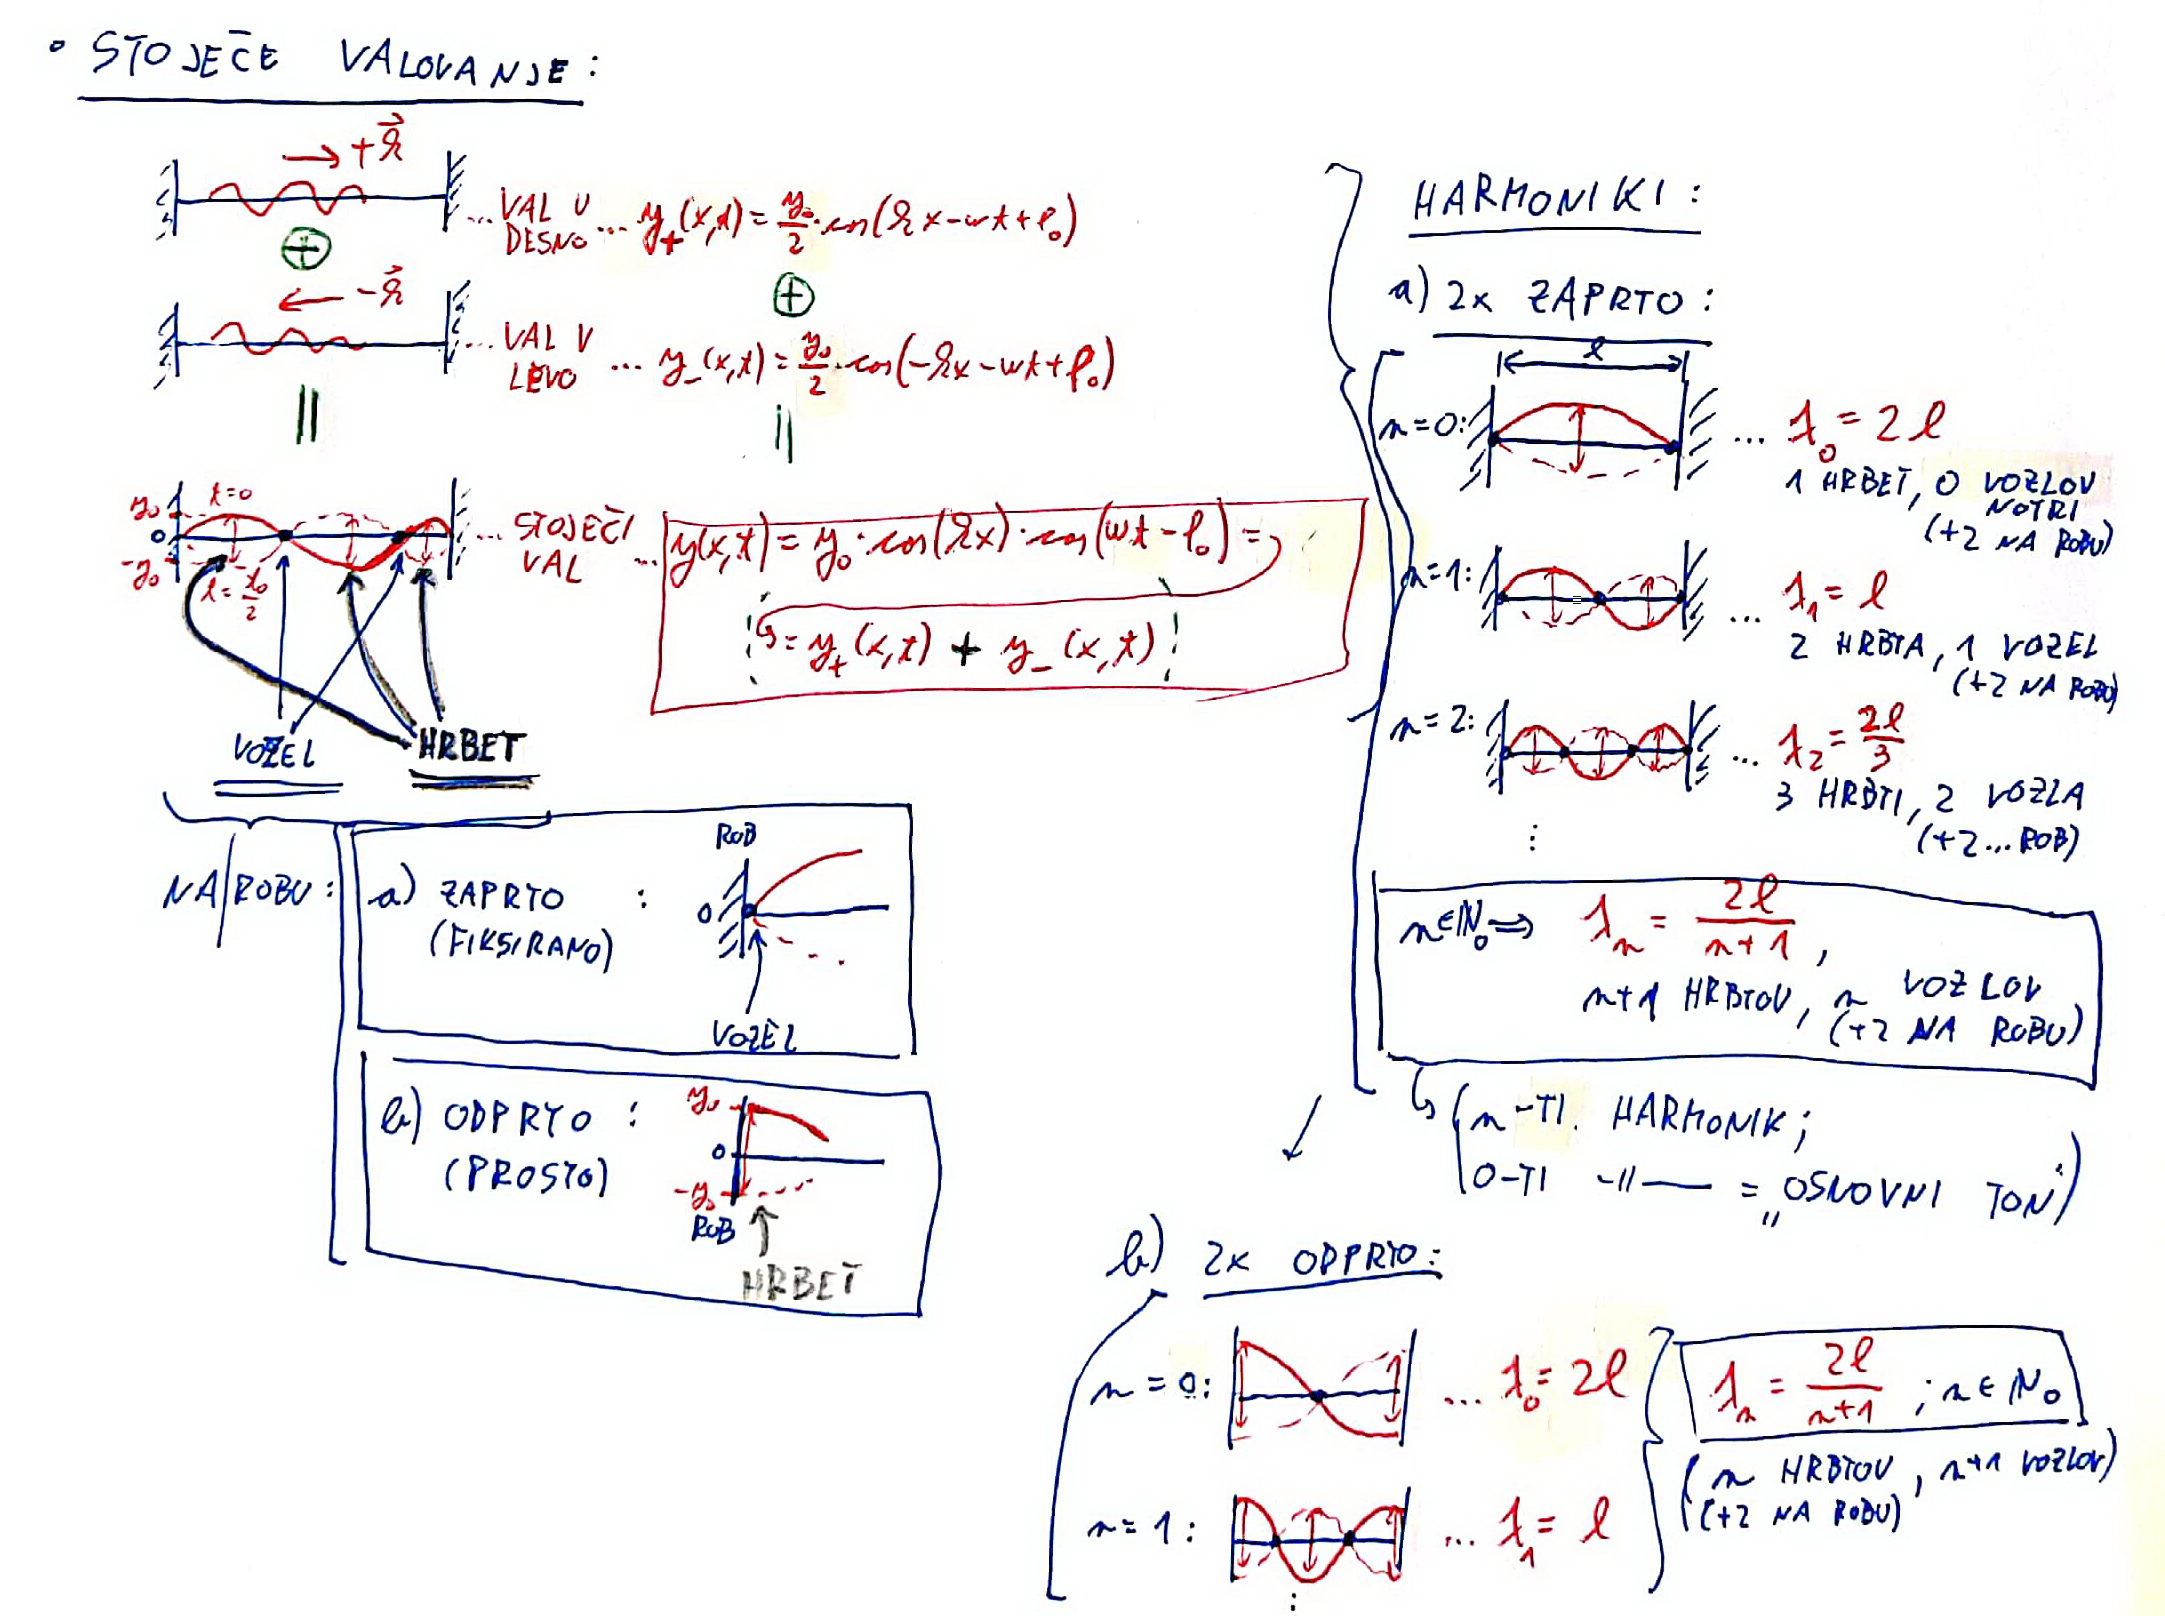 • STOJEČE VALOVANJE:
→ +k⃗
... VAL V DESNO ... y₊(x,t) = y₀/2 · cos(kx - ωt + φ₀)
⊕ ⊕
← -k⃗
... VAL V LEVO ... y₋(x,t) = y₀/2 · cos(-kx - ωt + φ₀)
|| ||
y₀ t=0
0
-y₀ t = t₀/2
... STOJEČI VAL ... y(x,t) = y₀ · cos(kx) · cos(ωt - φ₀) =
= y₊(x,t) + y₋(x,t)
VOZEL HRBET
NA ROBU:
a) ZAPRTO :
(FIKSIRANO)
ROB
0
VOZEL
b) ODPRTO :
(PROSTO)
y₀
0
-y₀
ROB
HRBET
HARMONIKI:
a) 2x ZAPRTO:
l
n=0: ... λ₀ = 2l
1 HRBET, 0 VOZLOV
NOTRI
(+2 NA ROBU)
n=1: ... λ₁ = l
2 HRBTA, 1 VOZEL
(+2 NA ROBU)
n=2: ... λ₂ = 2l/3
3 HRBTI, 2 VOZLA
(+2...ROB)
⋮
n∈N₀ ⇒ λₙ = 2l/(n+1),
n+1 HRBTOV, n VOZLOV
(+2 NA ROBU)
↳ (n-TI HARMONIK;
0-TI -||- = „OSNOVNI TON")
b) 2x ODPRTO:
n=0: ... λ₀ = 2l
n=1: ... λ₁ = l
⋮
λₙ = 2l/(n+1) ; n∈N₀
(n HRBTOV, n+1 VOZLOV)
(+2 NA ROBU)